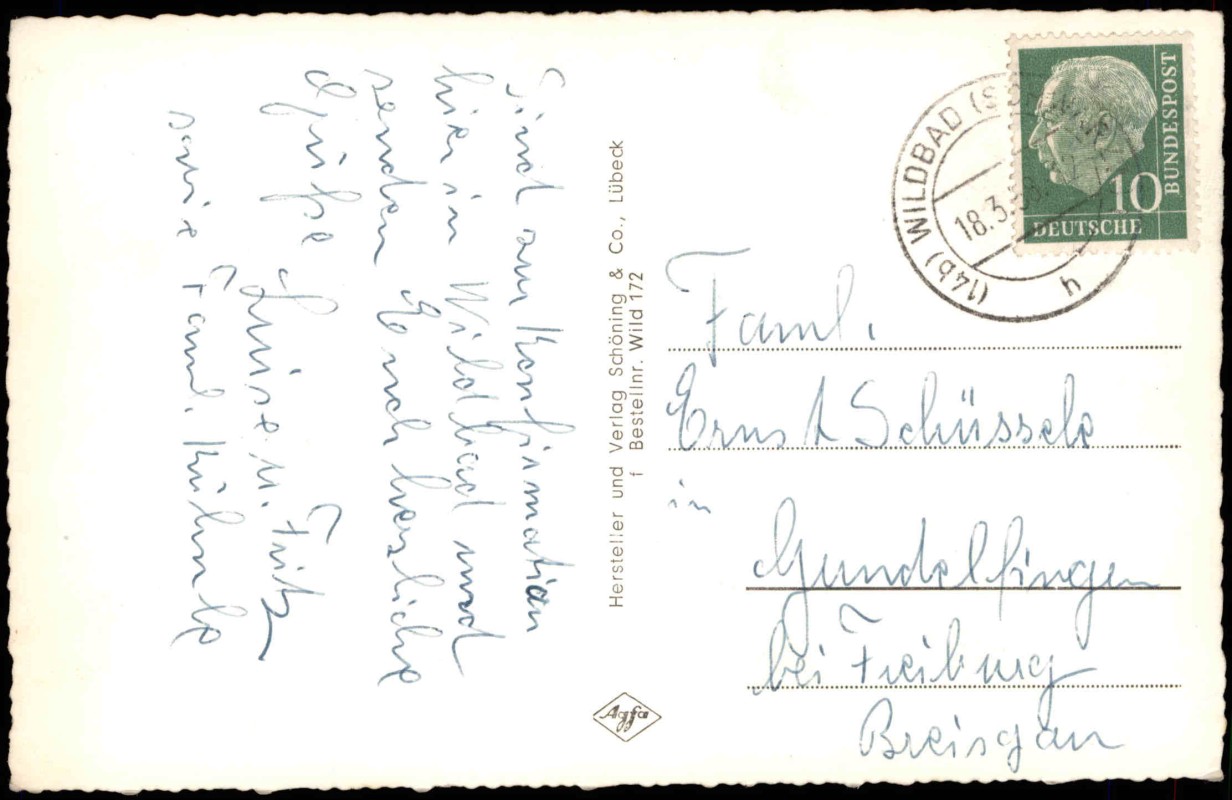 Sind zur Konfirmation
hier in Wildbad und
senden Euch herzliche
Grüße Luise u. Fritz
sowie Faml. Kühnle
Hersteller und Verlag Schöning & Co., Lübeck
f Bestellnr. Wild 172
Agfa
(14b) WILDBAD
18.3.58
h
10
BUNDESPOST
DEUTSCHE
Faml.
Ernst Schüssele
in
Gundelfingen
bei Freiburg
Breisgau